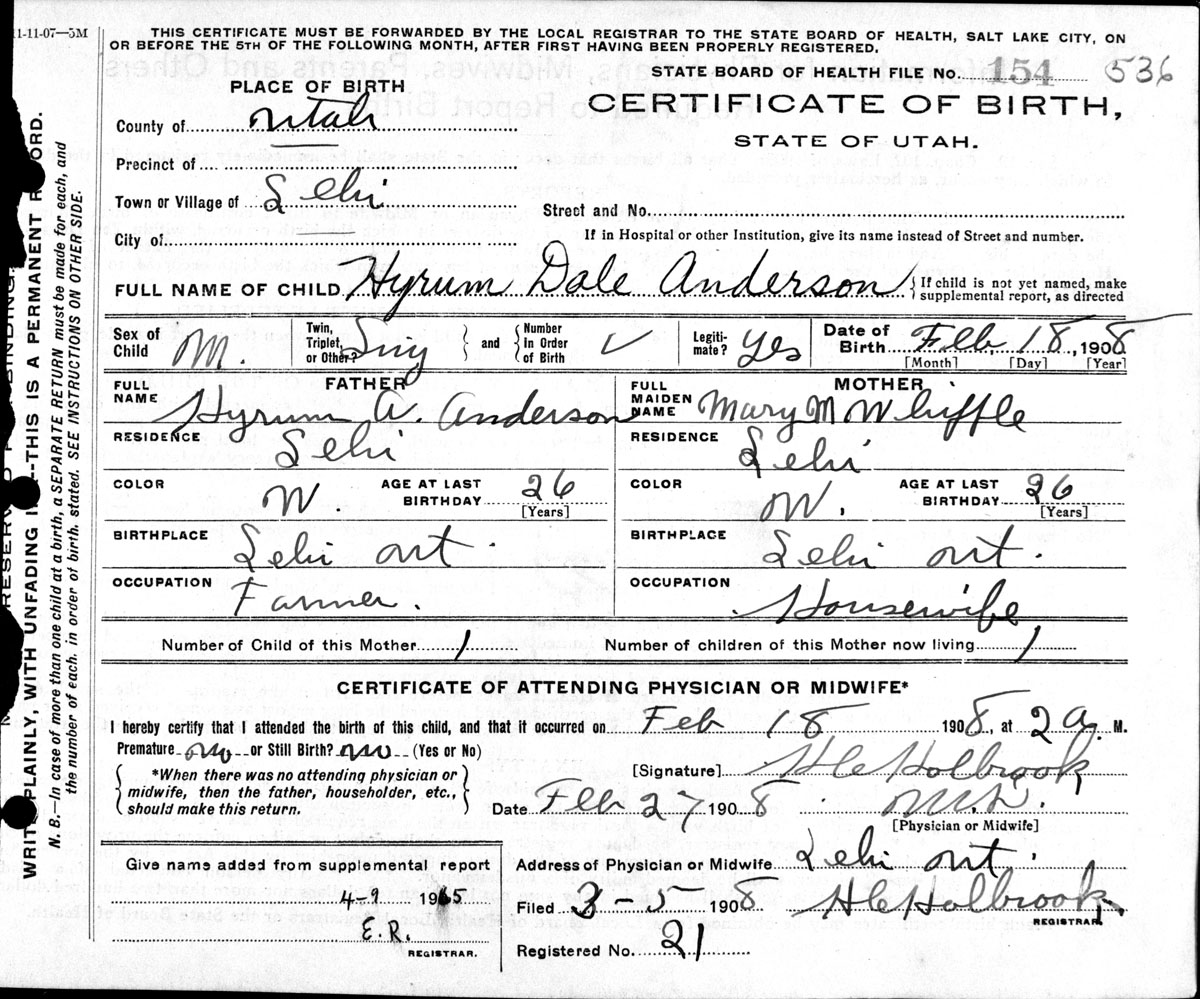 11-11-07—5M
THIS CERTIFICATE MUST BE FORWARDED BY THE LOCAL REGISTRAR TO THE STATE BOARD OF HEALTH, SALT LAKE CITY, ON
OR BEFORE THE 5TH OF THE FOLLOWING MONTH, AFTER FIRST HAVING BEEN PROPERLY REGISTERED.
STATE BOARD OF HEALTH FILE NO. 154 536
PLACE OF BIRTH
CERTIFICATE OF BIRTH,
STATE OF UTAH.
County of Utah
Precinct of
Town or Village of Lehi
Street and No.
City of
If in Hospital or other Institution, give its name instead of Street and number.
FULL NAME OF CHILD Hyrum Dale Anderson {If child is not yet named, make supplemental report, as directed
Sex of Child M. Twin, Triplet, or Other? Sing } and { Number In Order of Birth ✓ Legiti-mate? Yes Date of Birth Feb. 18, 1908
[Month] [Day] [Year]
FATHER
FULL NAME Hyrum A. Anderson
RESIDENCE Lehi
COLOR W. AGE AT LAST BIRTHDAY 26
[Years]
BIRTHPLACE Lehi Ut.
OCCUPATION Farmer.
MOTHER
FULL MAIDEN NAME Mary M Whipple
RESIDENCE Lehi
COLOR W. AGE AT LAST BIRTHDAY 26
[Years]
BIRTHPLACE Lehi Ut.
OCCUPATION Housewife
Number of Child of this Mother 1 Number of children of this Mother now living 1
CERTIFICATE OF ATTENDING PHYSICIAN OR MIDWIFE*
I hereby certify that I attended the birth of this child, and that it occurred on Feb 18 1908, at 2 a. M.
Premature no or Still Birth? no (Yes or No)
{*When there was no attending physician or midwife, then the father, householder, etc., should make this return.}
[Signature] H C Holbrook
Date Feb 27 1908 M.D.
[Physician or Midwife]
Give name added from supplemental report
4-9 1965
E.R.
REGISTRAR.
Address of Physician or Midwife Lehi Ut.
Filed 3-5 1908 H C Holbrook
REGISTRAR.
Registered No. 21
WRITE PLAINLY, WITH UNFADING THIS IS A PERMANENT RECORD.
N. B.—In case of more than one child at a birth, a SEPARATE RETURN must be made for each, and
the number of each, in order of birth, stated. SEE INSTRUCTIONS ON OTHER SIDE.